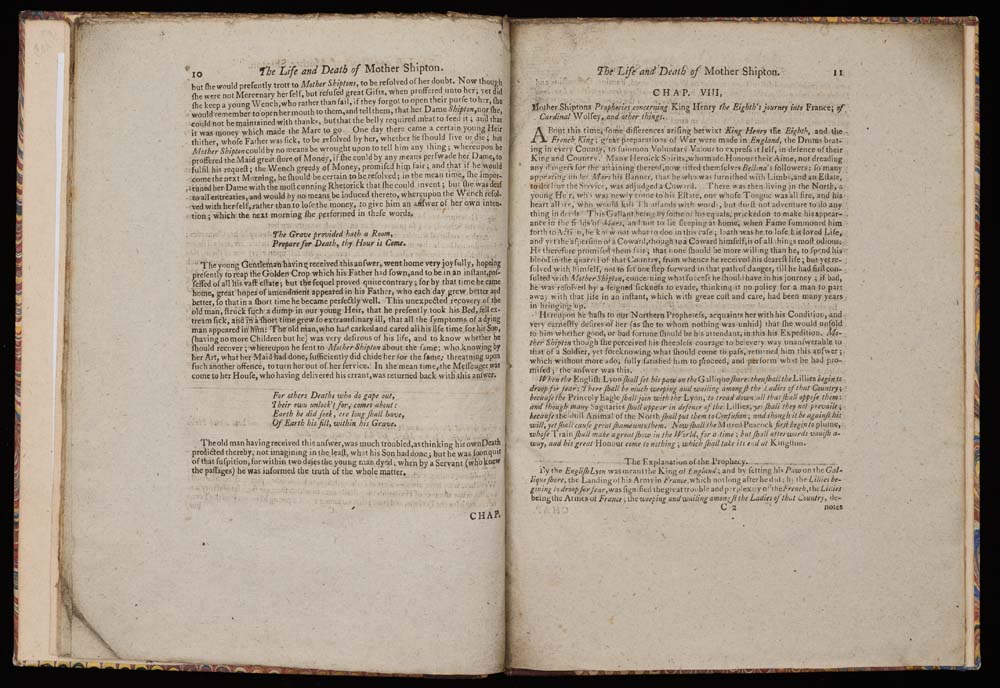 10 The Life and Death of Mother Shipton.
but ſhe would preſently trott to Mother Shiptons, to be reſolved of her doubt. Now though
ſhe were not Mercenary her ſelf, but refuſed great Gifts, when proffered unto her; yet did
ſhe keep a young Wench, who rather than fail, if they forgot to open their purſe to her, ſhe
would remember to open her mouth to them, and tell them, that her Dame Shipton, nor ſhe,
could not be maintained with thanks, but that the belly required meat to feed it; and that
it was money which made the Mare to go. One day there came a certain young Heir
thither, whoſe Father was ſick, to be reſolved by her, whether he ſhould live or die; but
Mother Shipton could by no means be wrought upon to tell him any thing; whereupon he
proffered the Maid great ſtore of Money, if ſhe could by any means perſwade her Dame, to
fulfil his requeſt; the Wench greedy of Money, promiſed him fair; and that if he would
come the next Morning, he ſhould be certain to be reſolved; in the mean time, ſhe impor-
tuned her Dame with the moſt cunning Rhetorick that ſhe could invent; but ſhe was deaf
to all entreaties, and would by no means be induced thereto, whereupon the Wench reſol-
ved with her ſelf, rather than to loſe the money, to give him an anſwer of her own inten-
tion; which the next morning ſhe performed in theſe words.
The Grave provided hath a Room,
Prepare for Death, thy Hour is Come.
The young Gentleman having received this anſwer, went home very joyfully, hoping
preſently to reap the Golden Crop which his Father had ſown, and to be in an inſtant, poſ-
ſeſſed of all his vaſt eſtate; but the ſequel proved quite contrary; for by that time he came
home, great hopes of amendment appeared in his Father, who each day grew better and
better, ſo that in a ſhort time he became perfectly well. This unexpected recovery of the
old man, ſtruck ſuch a dump in our young Heir, that he preſently took his Bed, fell ex-
tream ſick, and in a ſhort time grew ſo extraordinary ill, that all the ſymptoms of a dying
man appeared in him: The old man, who had carked and cared all his life time for his Son,
(having no more Children but he) was very deſirous of his life, and to know whether he
ſhould recover; whereupon he ſent to Mother Shipton about the ſame; who knowing by
her Art, what her Maid had done, ſufficiently did chide her for the ſame, threatning upon
ſuch another offence, to turn her out of her ſervice. In the mean time, the Meſſenger was
come to her Houſe, who having delivered his errant, was returned back with this anſwer.
For others Deaths who do gape out,
Their own unlook't for, comes about:
Earth he did ſeek, ere long ſhall have,
Of Earth his fill, within his Grave.
The old man having received this anſwer, was much troubled, as thinking his own Death
predicted thereby, not imagining in the leaſt, what his Son had done; but he was ſoon quit
of that ſuſpition, for within two dayes the young man dyed; when by a Servant (who knew
the paſſages) he was informed the truth of the whole matter.
CHAP.
The Life and Death of Mother Shipton. 11
CHAP. VIII,
Mother Shiptons Propheſies concerning King Henry the Eighth's journey into France; of
Cardinal Wolſey, and other things.
ABout this time, ſome differences ariſing betwixt King Henry the Eighth, and the
French King; great preparations of War were made in England, the Drums beat-
ing in every County, to ſummon Voluntary Valour to expreſs it ſelf, in defence of their
King and Country. Many Heroick Spirits, whom made Honour their Aime, not dreading
any dangers for the attaining thereof, now liſted themſelves Bellona's followers; ſo many
appearing under Mars his Banner, that he who was furniſhed with Limbs, and an Eſtate,
to decline the Service, was adjudged a Coward. There was then living in the North, a
young Heir, who was newly come to his Eſtate, one whoſe Tongue was all fire, and his
heart all ice, who would kill Thouſands with words, but durſt not adventure to do any
thing in deeds. This Gallant being by ſome of his equals, pricked on to make his appear-
ance in the fields of Mars, and not to lie ſleeping at home, when Fame ſummoned him
forth to Action, he knew not what to doe in this caſe; loath was he to loſe his loved Life,
and yet the aſperſion of a Coward, though to a Coward himſelf, is of all things moſt odious:
He therefore promiſed them fair, that none ſhould be more willing than he, to ſpend his
blood in the quarrel of that Country, from whence he received his deareſt life; but yet re-
ſolved with himſelf, not to ſet one ſtep forward in that path of danger, till he had firſt con-
ſulted with Mother Shipton, concerning what ſucceſs he ſhould have in his journey; if bad,
he was reſolved by a feigned ſickneſs to evade, thinking it no policy for a man to part
away with that life in an inſtant, which with great coſt and care, had been many years
in bringing up.
Hereupon he haſts to our Northern Propheteſs, acquaints her with his Condition, and
very earneſtly deſires of her (as ſhe to whom nothing was unhid) that ſhe would unfold
to him whether good, or bad fortune ſhould be his attendant, in this his Expedition. Mo-
ther Shipton though ſhe perceived his ſheepiſh courage to be every way unanſwerable to
that of a Soldier, yet foreknowing what ſhould come to paſs, returned him this anſwer;
which without more ado, fully ſatisfied him to proceed, and perform what he had pro-
miſed; the anſwer was this.
When the Engliſh Lyon ſhall ſet his paw on the Gallique ſhore: then ſhall the Lillies begin to
droop for fear: There ſhall be much weeping and wailing amongſt the Ladies of that Country;
becauſe the Princely Eagle ſhall join with the Lyon, to tread down all that ſhall oppoſe them:
and though many Sagitaries ſhall appear in defence of the Lillies, yet ſhall they not prevaile;
becauſe the dull Animal of the North ſhall put them to Confuſion; and though it be againſt his
will, yet ſhall cauſe great ſhame unto them. Now ſhall the Mitred Peacock firſt begin to plume,
whoſe Train ſhall make a great ſhow in the World, for a time; but ſhall afterwards vaniſh a-
way, and his great Honour come to nothing; which ſhall take its end at Kingſton.
The Explanation of the Prophecy.
By the Engliſh Lyon was meant the King of England; and by ſetting his Paw on the Gal-
lique ſhore, the Landing of his Army in France, which not long after he did; by the Lillies be-
gining to droop for fear, was ſignified the great trouble and perplexity of the French, the Lillies
being the Armes of France; the weeping and wailing amongſt the Ladies of that Country, de-
C 2 notes